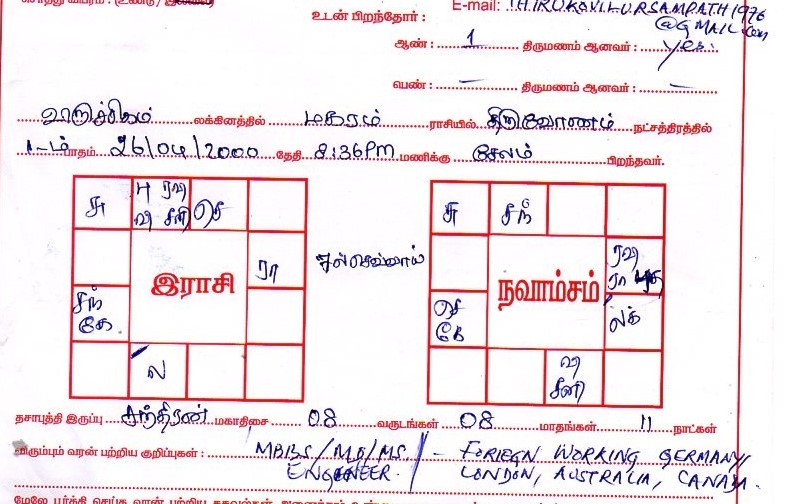 சொத்து விபரம் : (உண்டு / இல்லை)
E-mail: THIRUKOVILURSAMPATH1976
@GMAIL.Com
உடன் பிறந்தோர் :
ஆண் : 1 திருமணம் ஆனவர் : yes.
பெண் : — திருமணம் ஆனவர் : —
லக்கினத்தில் மகரம் ராசியில் திருவோணம் நட்சத்திரத்தில்
1-ம் பாதம் 26/04/2000 தேதி 8:36PM மணிக்கு சேலம் பிறந்தவர்.
சு
பு ரவி
வி சனி
செ
ரா
சந்
கே.
ல
இராசி
சுக்செவ்வாய்
சு
சந்
ரவி
ரா
லக்
செ
கே
வி
சனி
நவாம்சம்
தசாபுத்தி இருப்பு சந்திரன் மகாதிசை 08 வருடங்கள் 08 மாதங்கள் 11 நாட்கள்
விரும்பும் வரன் பற்றிய குறிப்புகள் : MBBS/MD/MS/ - FORIEGN WORKING GERMANY,
ENGENEER. LONDON, AUSTRALIA, CANADA.